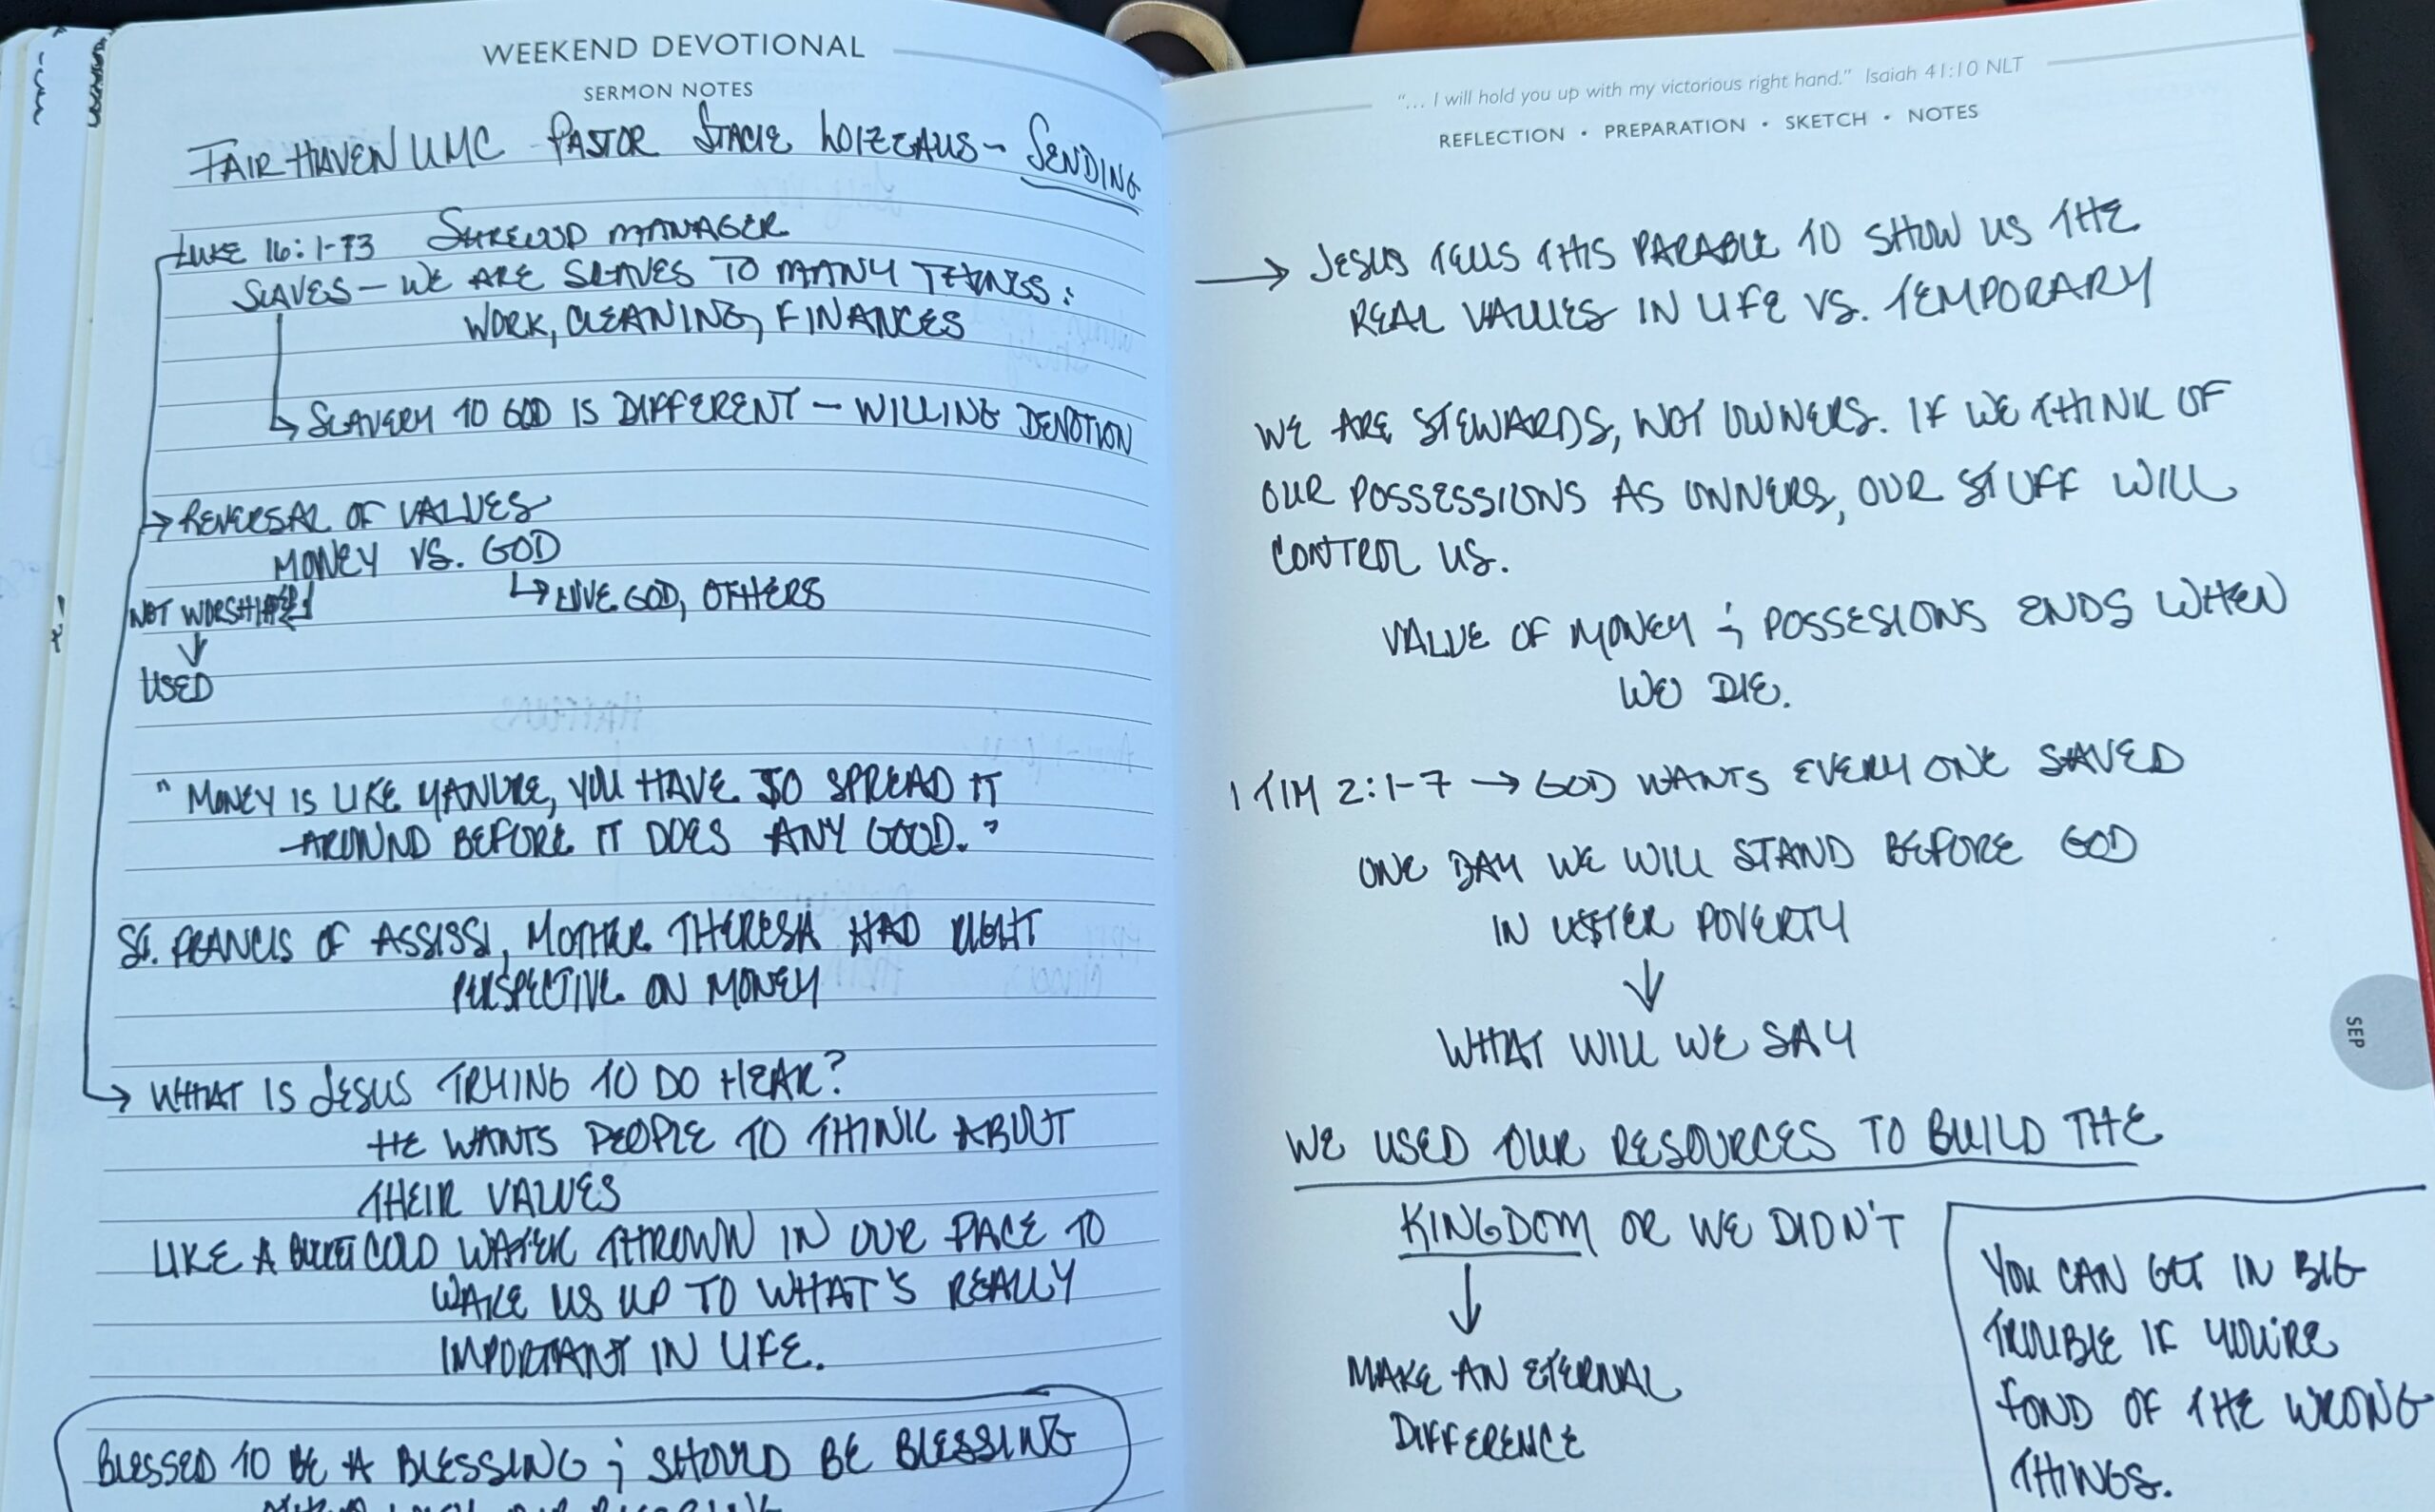 WEEKEND DEVOTIONAL
SERMON NOTES
FAIR HAVEN UMC - PASTOR STACIE LOIZEAUS - SENDING
LUKE 16:1-13 SHREWD MANAGER
SLAVES - WE ARE SLAVES TO MANY THINGS:
WORK, CLEANING, FINANCES
↳ SLAVERY TO GOD IS DIFFERENT - WILLING DEVOTION
→ REVERSAL OF VALUES
MONEY VS. GOD
NOT WORSHIPED ↳ LOVE GOD, OTHERS
↓
USED
"MONEY IS LIKE MANURE, YOU HAVE TO SPREAD IT
AROUND BEFORE IT DOES ANY GOOD."
ST. FRANCIS OF ASSISSI, MOTHER THERESA HAD RIGHT
PERSPECTIVE ON MONEY
→ WHAT IS JESUS TRYING TO DO HEAR?
HE WANTS PEOPLE TO THINK ABOUT
THEIR VALUES
LIKE A BUCKET COLD WATER THROWN IN OUR FACE TO
WAKE US UP TO WHAT'S REALLY
IMPORTANT IN LIFE.
BLESSED TO BE A BLESSING & SHOULD BE BLESSING
"... I will hold you up with my victorious right hand." Isaiah 41:10 NLT
REFLECTION • PREPARATION • SKETCH • NOTES
→ JESUS TELLS THIS PARABLE TO SHOW US THE
REAL VALUES IN LIFE VS. TEMPORARY
WE ARE STEWARDS, NOT OWNERS. IF WE THINK OF
OUR POSSESSIONS AS OWNERS, OUR STUFF WILL
CONTROL US.
VALUE OF MONEY & POSSESIONS ENDS WHEN
WE DIE.
1 TIM 2:1-7 → GOD WANTS EVERYONE SAVED
ONE DAY WE WILL STAND BEFORE GOD
IN UTTER POVERTY
↓
WHAT WILL WE SAY
SEP
WE USED OUR RESOURCES TO BUILD THE
KINGDOM OR WE DIDN'T
↓
MAKE AN ETERNAL
DIFFERENCE
YOU CAN GET IN BIG
TROUBLE IF YOU'RE
FOND OF THE WRONG
THINGS.